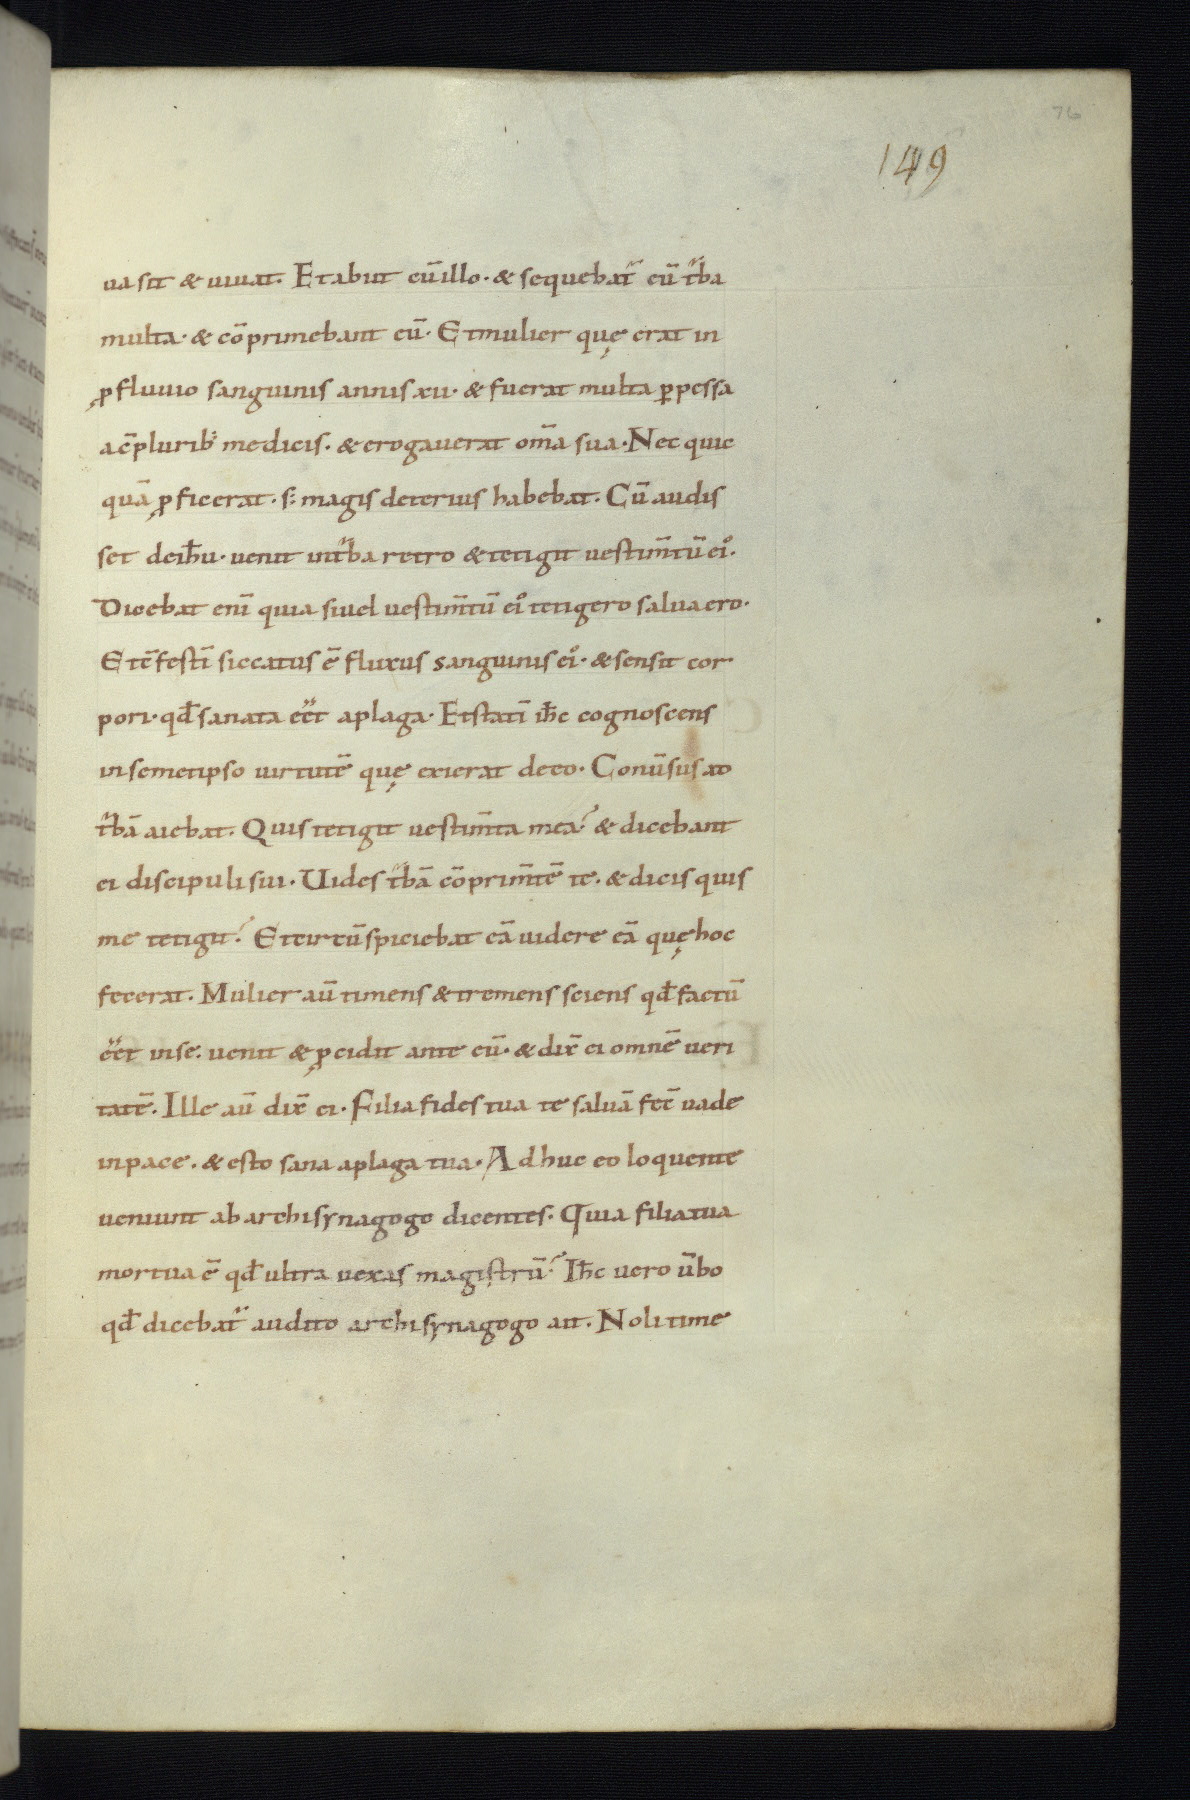 76
149
ua sit & uiuat. Et abiit cū illo. & sequebat᷑ eū t᷑ba
multa. & cōprimebant eū. Et mulier quę erat in
ꝓfluuio sanguinis annis xii. & fuerat multa ꝑpessa
a cōpluribꝰ medicis. & erogauerat om̄a sua. Nec quic
quā ꝓficerat. s; magis deterius habebat. Cū audis
set de ih̄u. uenit in t᷑ba retro & tetigit uestim̄tū ei᷒.
Dicebat eni̅ quia si uel uestim̄tū ei᷒ tetigero salua ero.
Et c̄festi̅ siccatus ē fluxus sanguinis ei᷒. & sensit cor
pori. qd̄ sanata eēt a plaga. Et stati̅ ih̄c cognoscens
in semetipso uirtutē quę exierat de eo. Conūsus ad
t᷑bā aiebat. Quis tetigit uestim̄ta mea? & dicebant
ei discipuli sui. Uides t᷑bā cōprim̄tē te. & dicis quis
me tetigit? Et circūspiciebat cā uidere eā quę hoc
fecerat. Mulier aū timens & tremens sciens qd̄ factū
eēt in se. uenit & ꝓcidit ante eū. & dix̄ ei omnē ueri
tatē. Ille aū dix̄ ei. Filia fides tua te saluā fec̄ uade
in pace. & esto sana a plaga tua. Adhuc eo loquente
ueniunt ab archisynagogo dicentes. Quia filia tua
mortua ē qd̄ ultra uexas magistrū? Ih̄c uero ūbo
qd̄ dicebat᷑ audito archisynagogo ait. Noli time